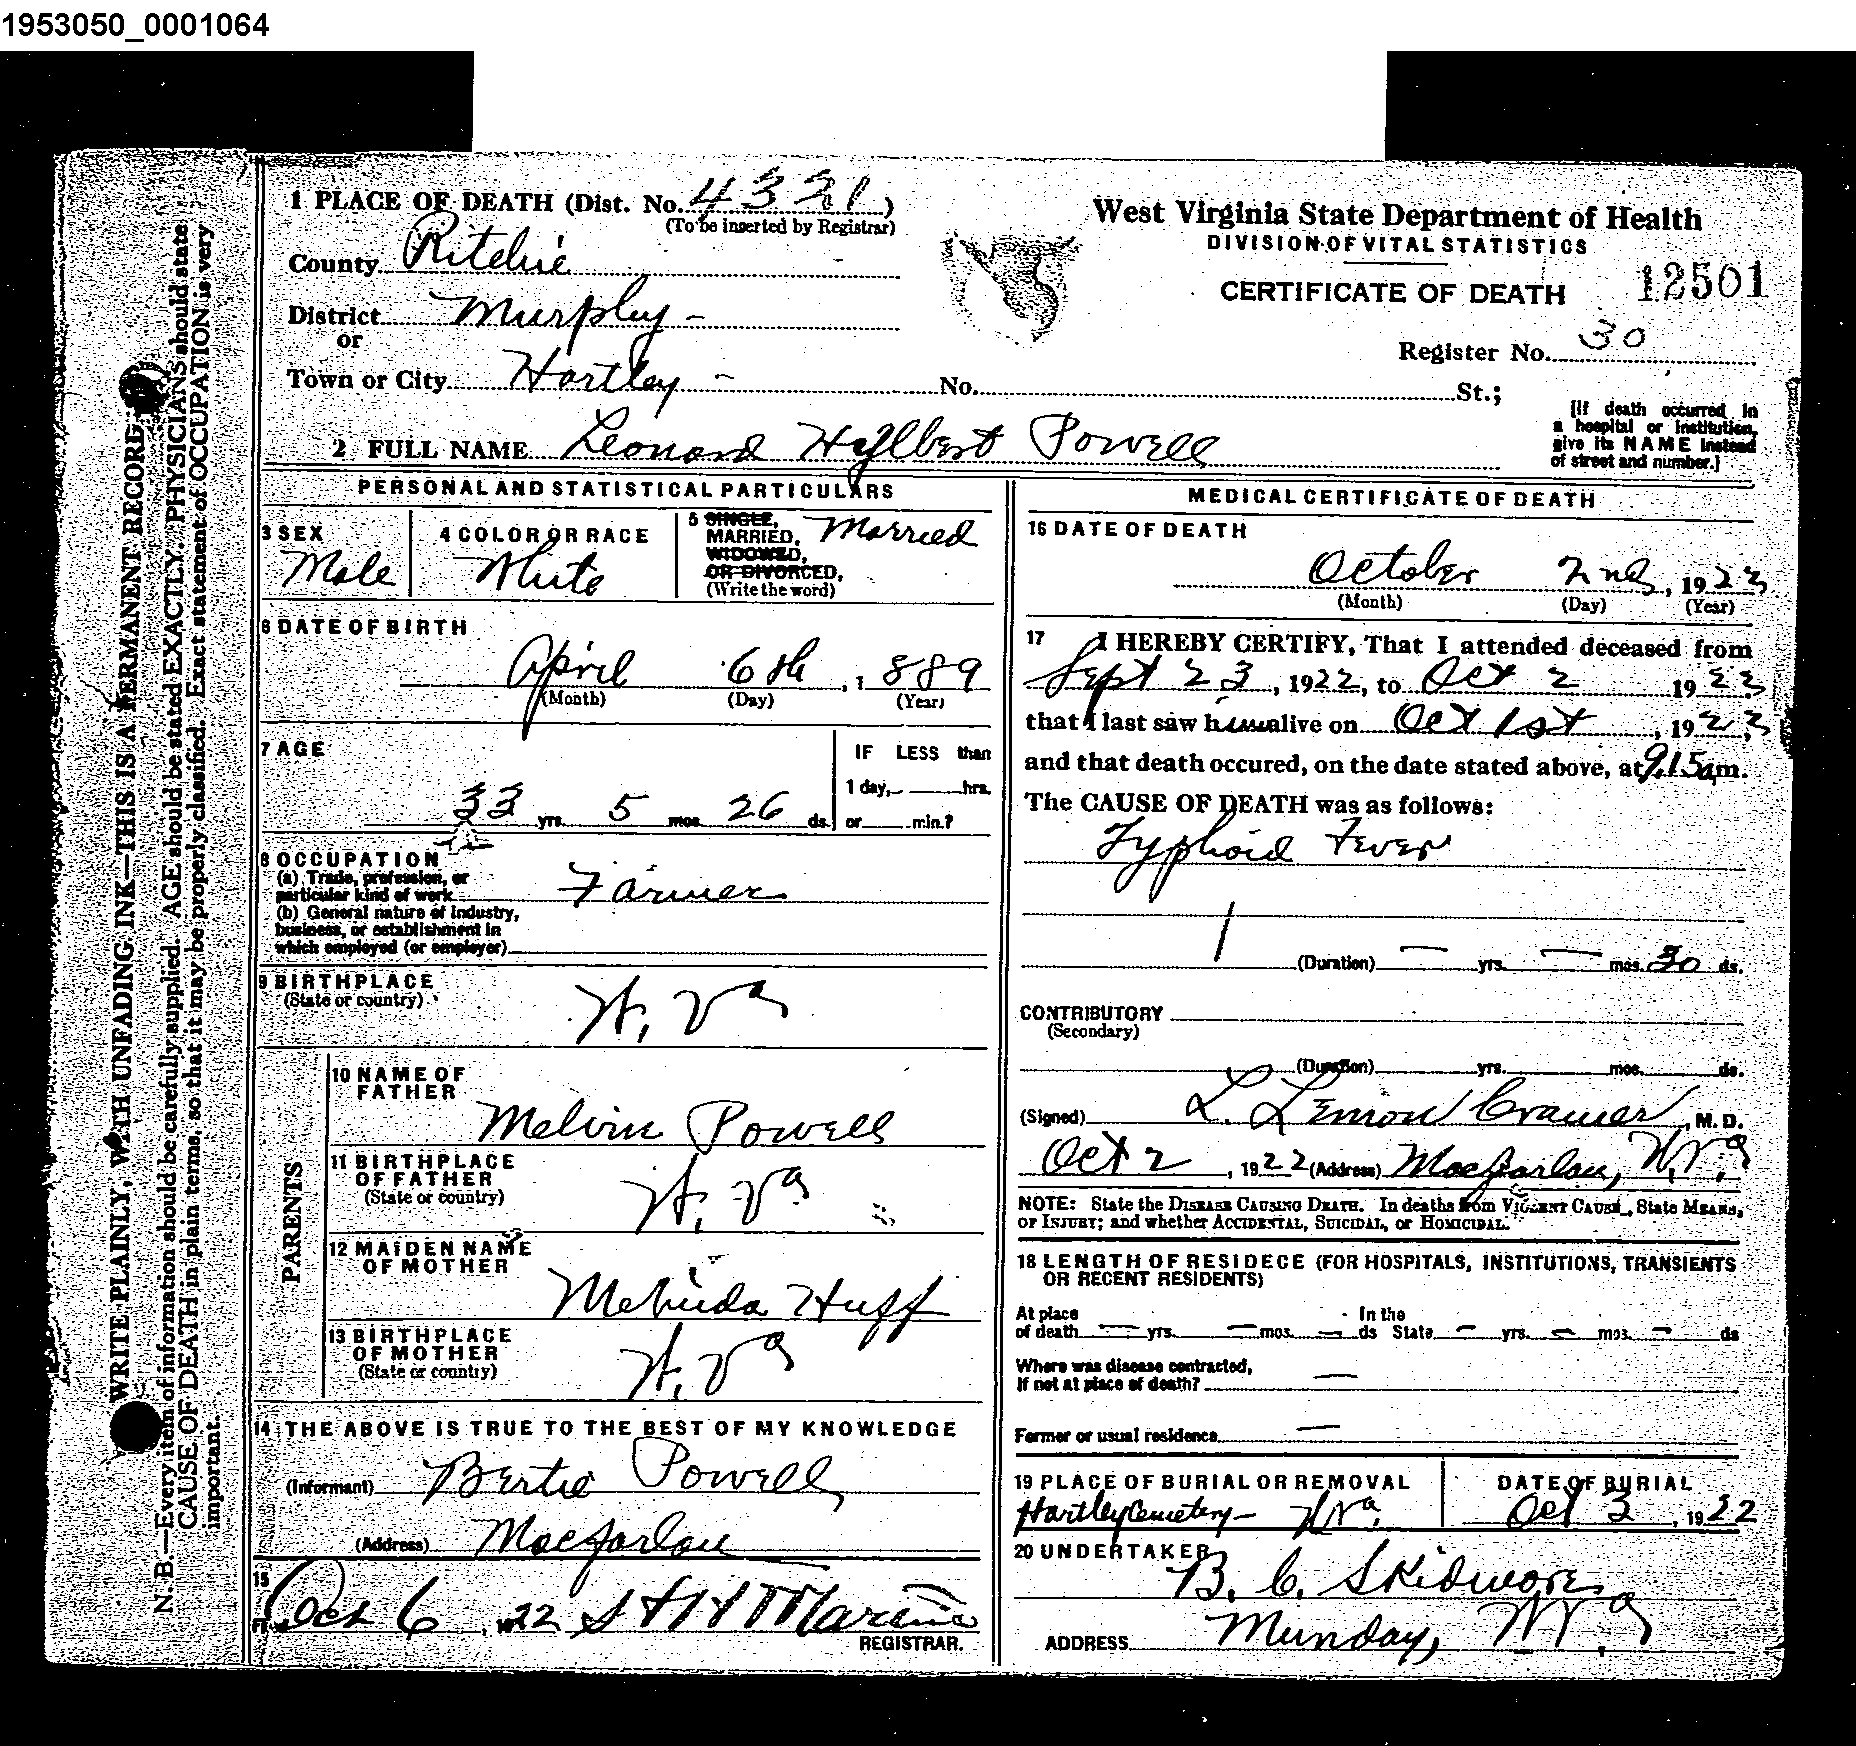 1953050_0001064
1 PLACE OF DEATH (Dist. No. 4321)
(To be inserted by Registrar)
County Ritchie
District Murphy -
or
Town or City Hartley - No. St.;
West Virginia State Department of Health
DIVISION OF VITAL STATISTICS
CERTIFICATE OF DEATH 12501
Register No. 30
[If death occurred in
a hospital or institution,
give its NAME instead
of street and number.]
2 FULL NAME Leonard Hylbert Powell
PERSONAL AND STATISTICAL PARTICULARS
3 SEX
Male
4 COLOR OR RACE
White
5 SINGLE,
MARRIED, Married
WIDOWED,
OR DIVORCED,
(Write the word)
6 DATE OF BIRTH
April 6th, 1889
(Month) (Day) (Year)
7 AGE
33 yrs. 5 mos. 26 ds.
IF LESS than
1 day, hrs.
or min.?
8 OCCUPATION
(a) Trade, profession, or
particular kind of work Farmer
(b) General nature of industry,
business, or establishment in
which employed (or employer)
9 BIRTHPLACE
(State or country)
W, Va
PARENTS
10 NAME OF
FATHER
Melvin Powell
11 BIRTHPLACE
OF FATHER
(State or country)
W, Va
12 MAIDEN NAME
OF MOTHER
Melinda Huff
13 BIRTHPLACE
OF MOTHER
(State or country)
W, Va
14 THE ABOVE IS TRUE TO THE BEST OF MY KNOWLEDGE
(Informant) Bertie Powell
(Address) Macfarlan
15
Oct 6, 1922
REGISTRAR.
MEDICAL CERTIFICATE OF DEATH
16 DATE OF DEATH
October 2nd, 1922
(Month) (Day) (Year)
17 I HEREBY CERTIFY, That I attended deceased from
Sept 23, 1922, to Oct 2 1922
that I last saw him alive on Oct 1st, 1922,
and that death occured, on the date stated above, at 9.15am.
The CAUSE OF DEATH was as follows:
Typhoid Fever
(Duration) — yrs. — mos. 30 ds.
CONTRIBUTORY
(Secondary)
(Duration) yrs. mos. ds.
(Signed) L. Lemon Cramer, M. D.
Oct 2, 1922 (Address) Macfarlan, W, Va
NOTE: State the DISEASE CAUSING DEATH. In deaths from VIOLENT CAUSE, State MEANS,
or INJURY; and whether ACCIDENTAL, SUICIDAL, or HOMICIDAL.
18 LENGTH OF RESIDECE (FOR HOSPITALS, INSTITUTIONS, TRANSIENTS
OR RECENT RESIDENTS)
At place In the
of death — yrs. — mos. — ds State — yrs. — mos. — ds
Where was disease contracted,
If not at place of death? —
Former or usual residence —
19 PLACE OF BURIAL OR REMOVAL
Hartley Cemetery - W Va.
DATE OF BURIAL
Oct 3, 1922
20 UNDERTAKER
B. C. Skidmore
ADDRESS Munday, W. Va
WRITE PLAINLY, WITH UNFADING INK—THIS IS A PERMANENT RECORD
N. B.—Every item of information should be carefully supplied. AGE should be stated EXACTLY. PHYSICIANS should state
CAUSE OF DEATH in plain terms, so that it may be properly classified. Exact statement of OCCUPATION is very
important.